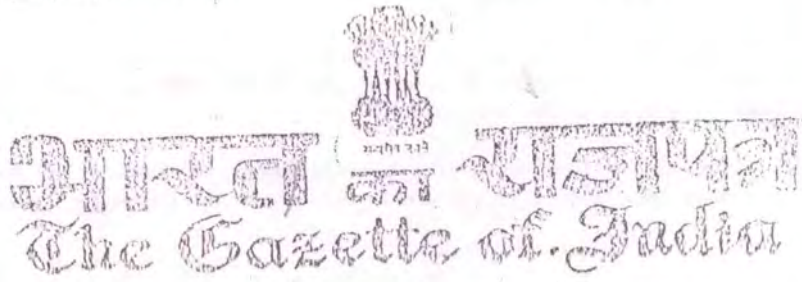 सत्यमेव जयते
भारत का राजपत्र
The Gazette of India